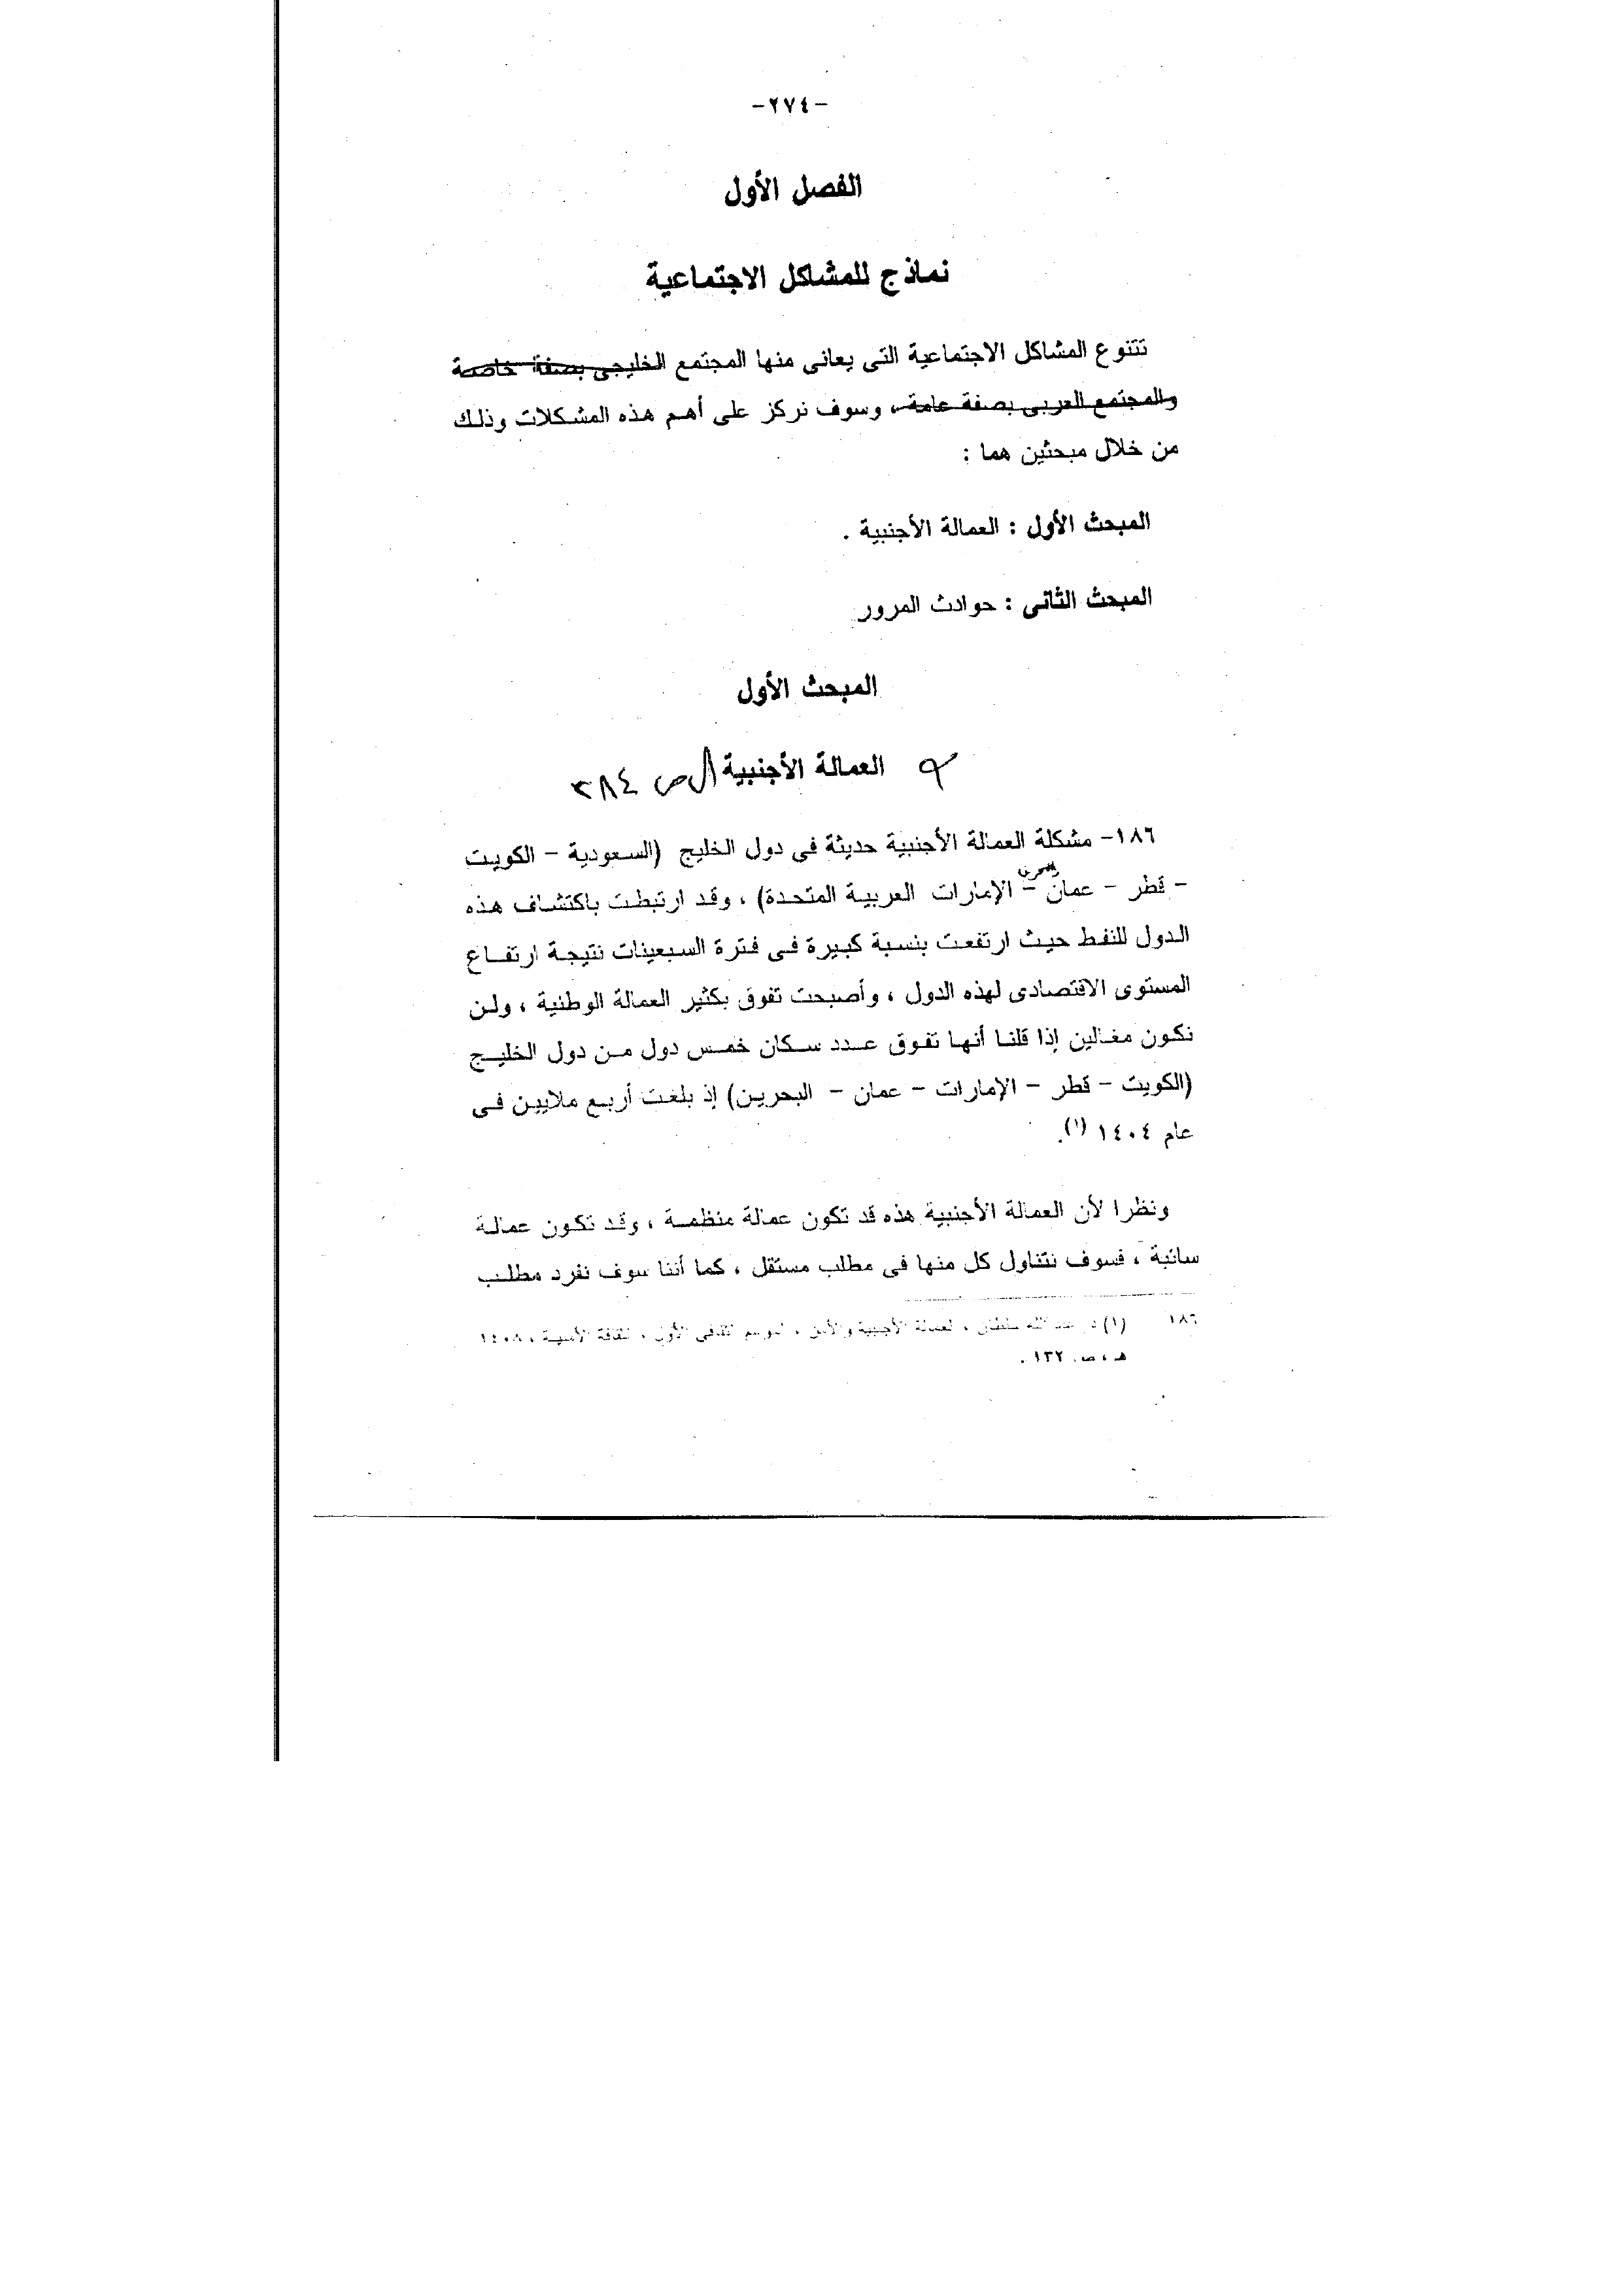 -٢٧٤-
الفصل الأول
نماذج للمشاكل الاجتماعية
تتنوع المشاكل الاجتماعية التى يعانى منها المجتمع الخليجى بصفة خاصة
والمجتمع العربى بصفة عامة ، وسوف نركز على أهم هذه المشكلات وذلك
من خلال مبحثين هما :
المبحث الأول : العمالة الأجنبية .
المبحث الثانى : حوادث المرور
المبحث الأول
العمالة الأجنبية ص ٣٨٤
١٨٦- مشكلة العمالة الأجنبية حديثة فى دول الخليج (السعودية - الكويت
البحرين
- قطر - عمان - الإمارات العربية المتحدة) ، وقد ارتبطت باكتشاف هذه
الدول للنفط حيث ارتفعت بنسبة كبيرة فى فترة السبعينات نتيجة ارتفاع
المستوى الاقتصادى لهذه الدول ، وأصبحت تفوق بكثير العمالة الوطنية ، ولن
نكون مغالين إذا قلنا أنها تفوق عدد سكان خمس دول من دول الخليج
(الكويت - قطر - الإمارات - عمان - البحرين) إذ بلغت أربع ملايين فى
عام ١٤٠٤ (١).
ونظرا لأن العمالة الأجنبية هذه قد تكون عمالة منظمة ، وقد تكون عمالة
سائبة ، فسوف نتناول كل منها فى مطلب مستقل ، كما أننا سوف نفرد مطلب
١٨٦ (١) د. عبد الله سلطان ، العمالة الأجنبية والأمن ، الموسم الثقافى الأول ، الثقافة الأمنية ، ١٤٠٨
هـ ، ص ١٣٢ .